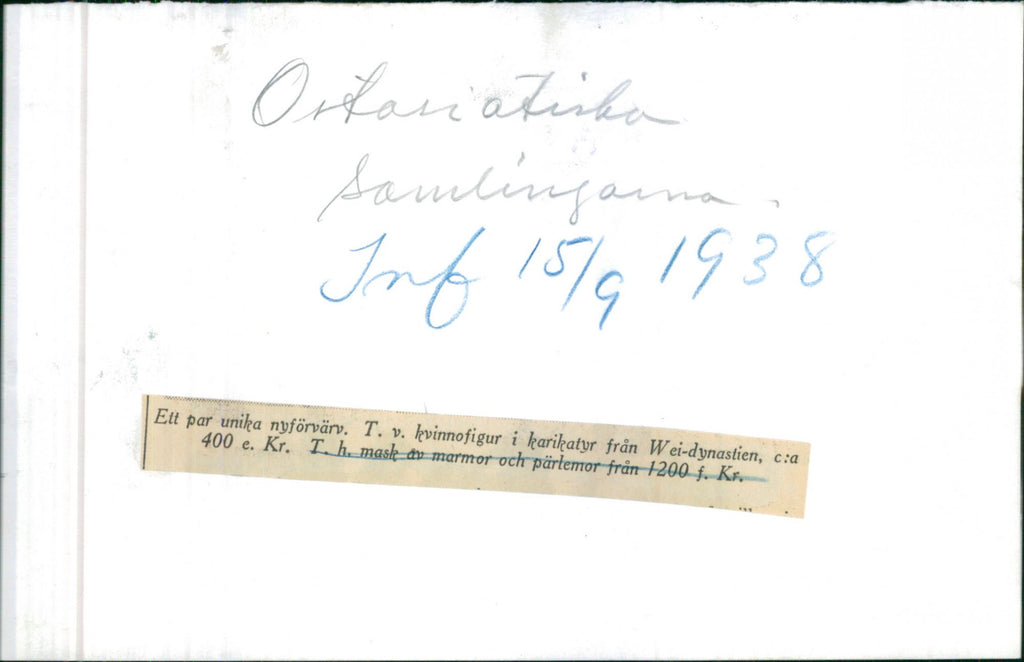 Ostasiatiska
Samlingarna.
Inf 15/9 1938
Ett par unika nyförvärv. T. v. kvinnofigur i karikatyr från Wei-dynastien, c:a
400 e. Kr. T. h. mask av marmor och pärlemor från 1200 f. Kr.